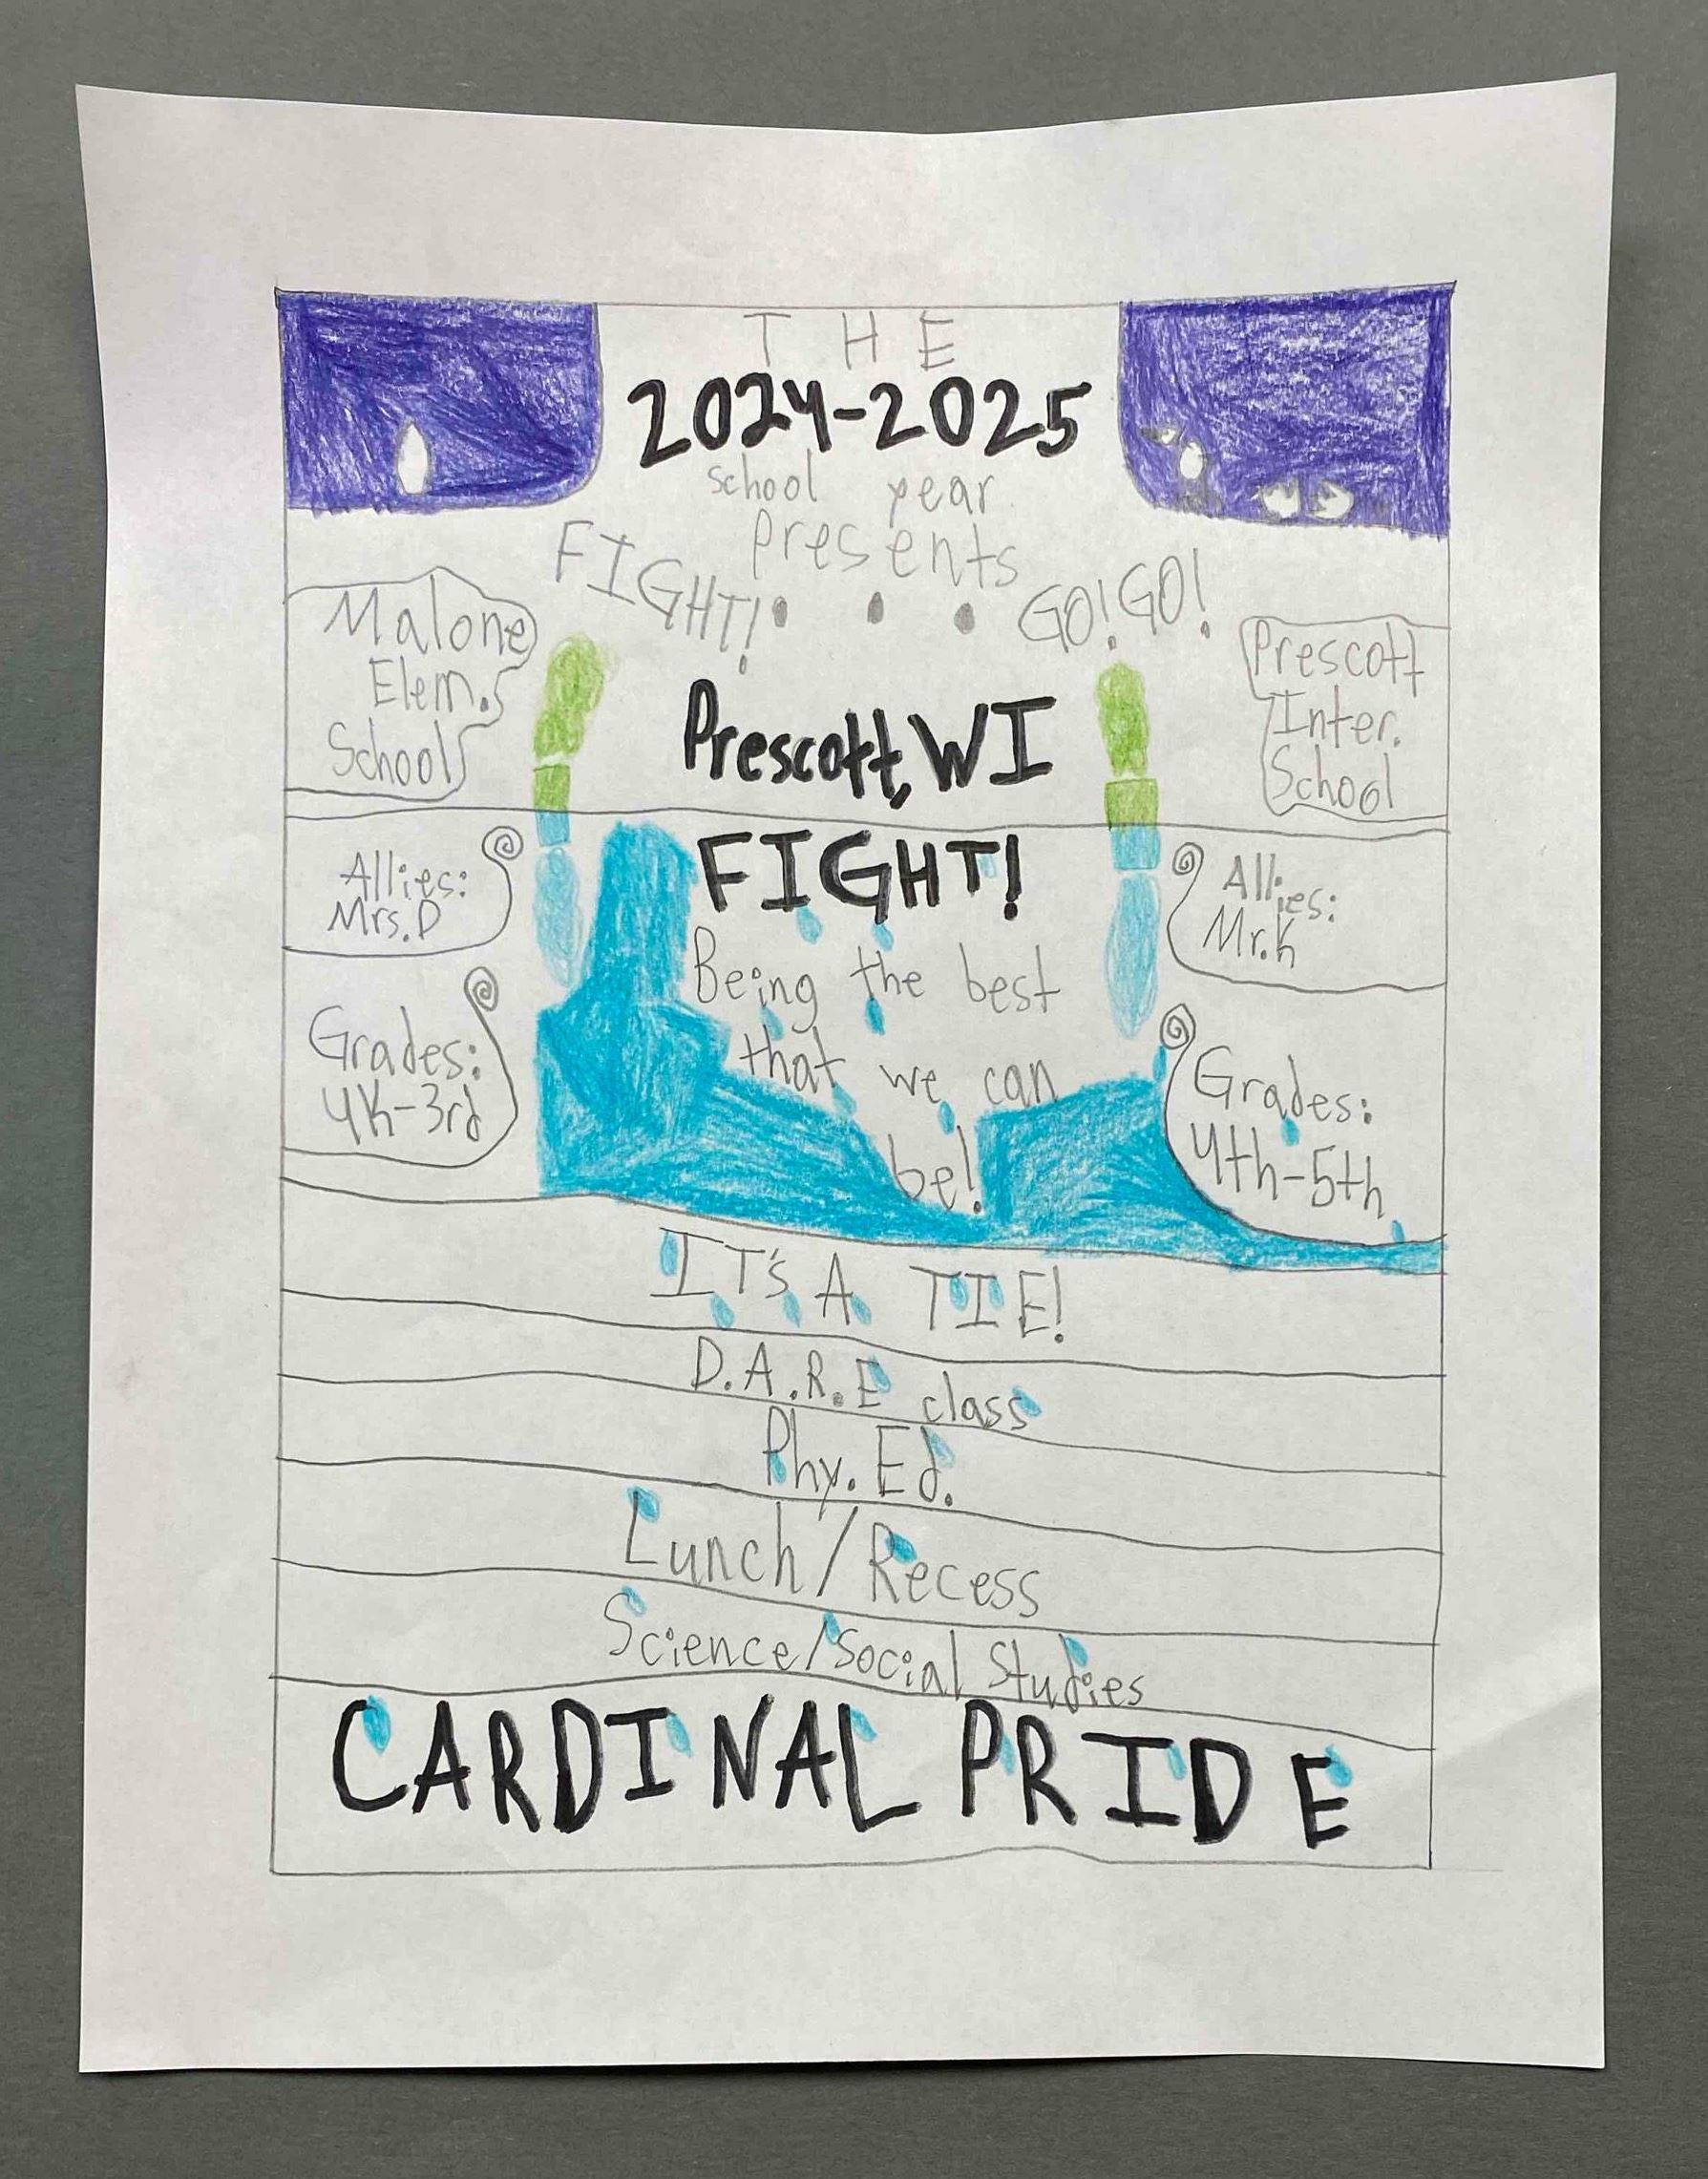 THE
2024-2025
school year
presents
FIGHT! . . . GO! GO!
Malone
Elem.
School
Prescott, WI
Prescott
Inter.
School
FIGHT!
Allies:
Mrs. D
Allies:
Mr. K
Being the best
that we can
be!
Grades:
4K-3rd
Grades:
4th-5th
IT's A TIE!
D.A.R.E class
Phy. Ed.
Lunch/Recess
Science/Social Studies
CARDINAL PRIDE